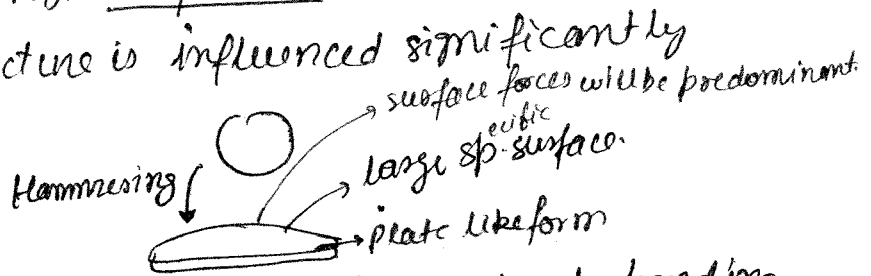 cture is influenced significantly
surface forces will be predominant.
large specific surface.
Hammresing
plate like form